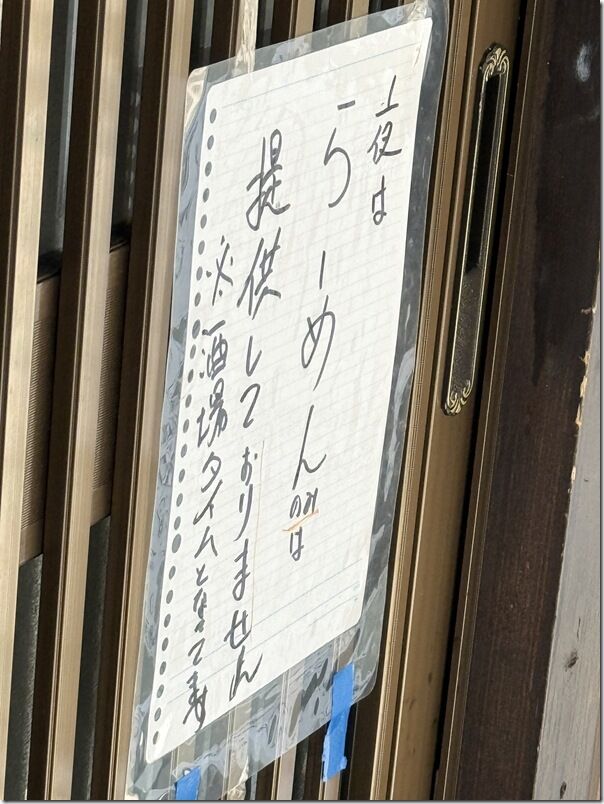 夜は
らーめんのみは
提供しておりません
※酒場タイムとなってます